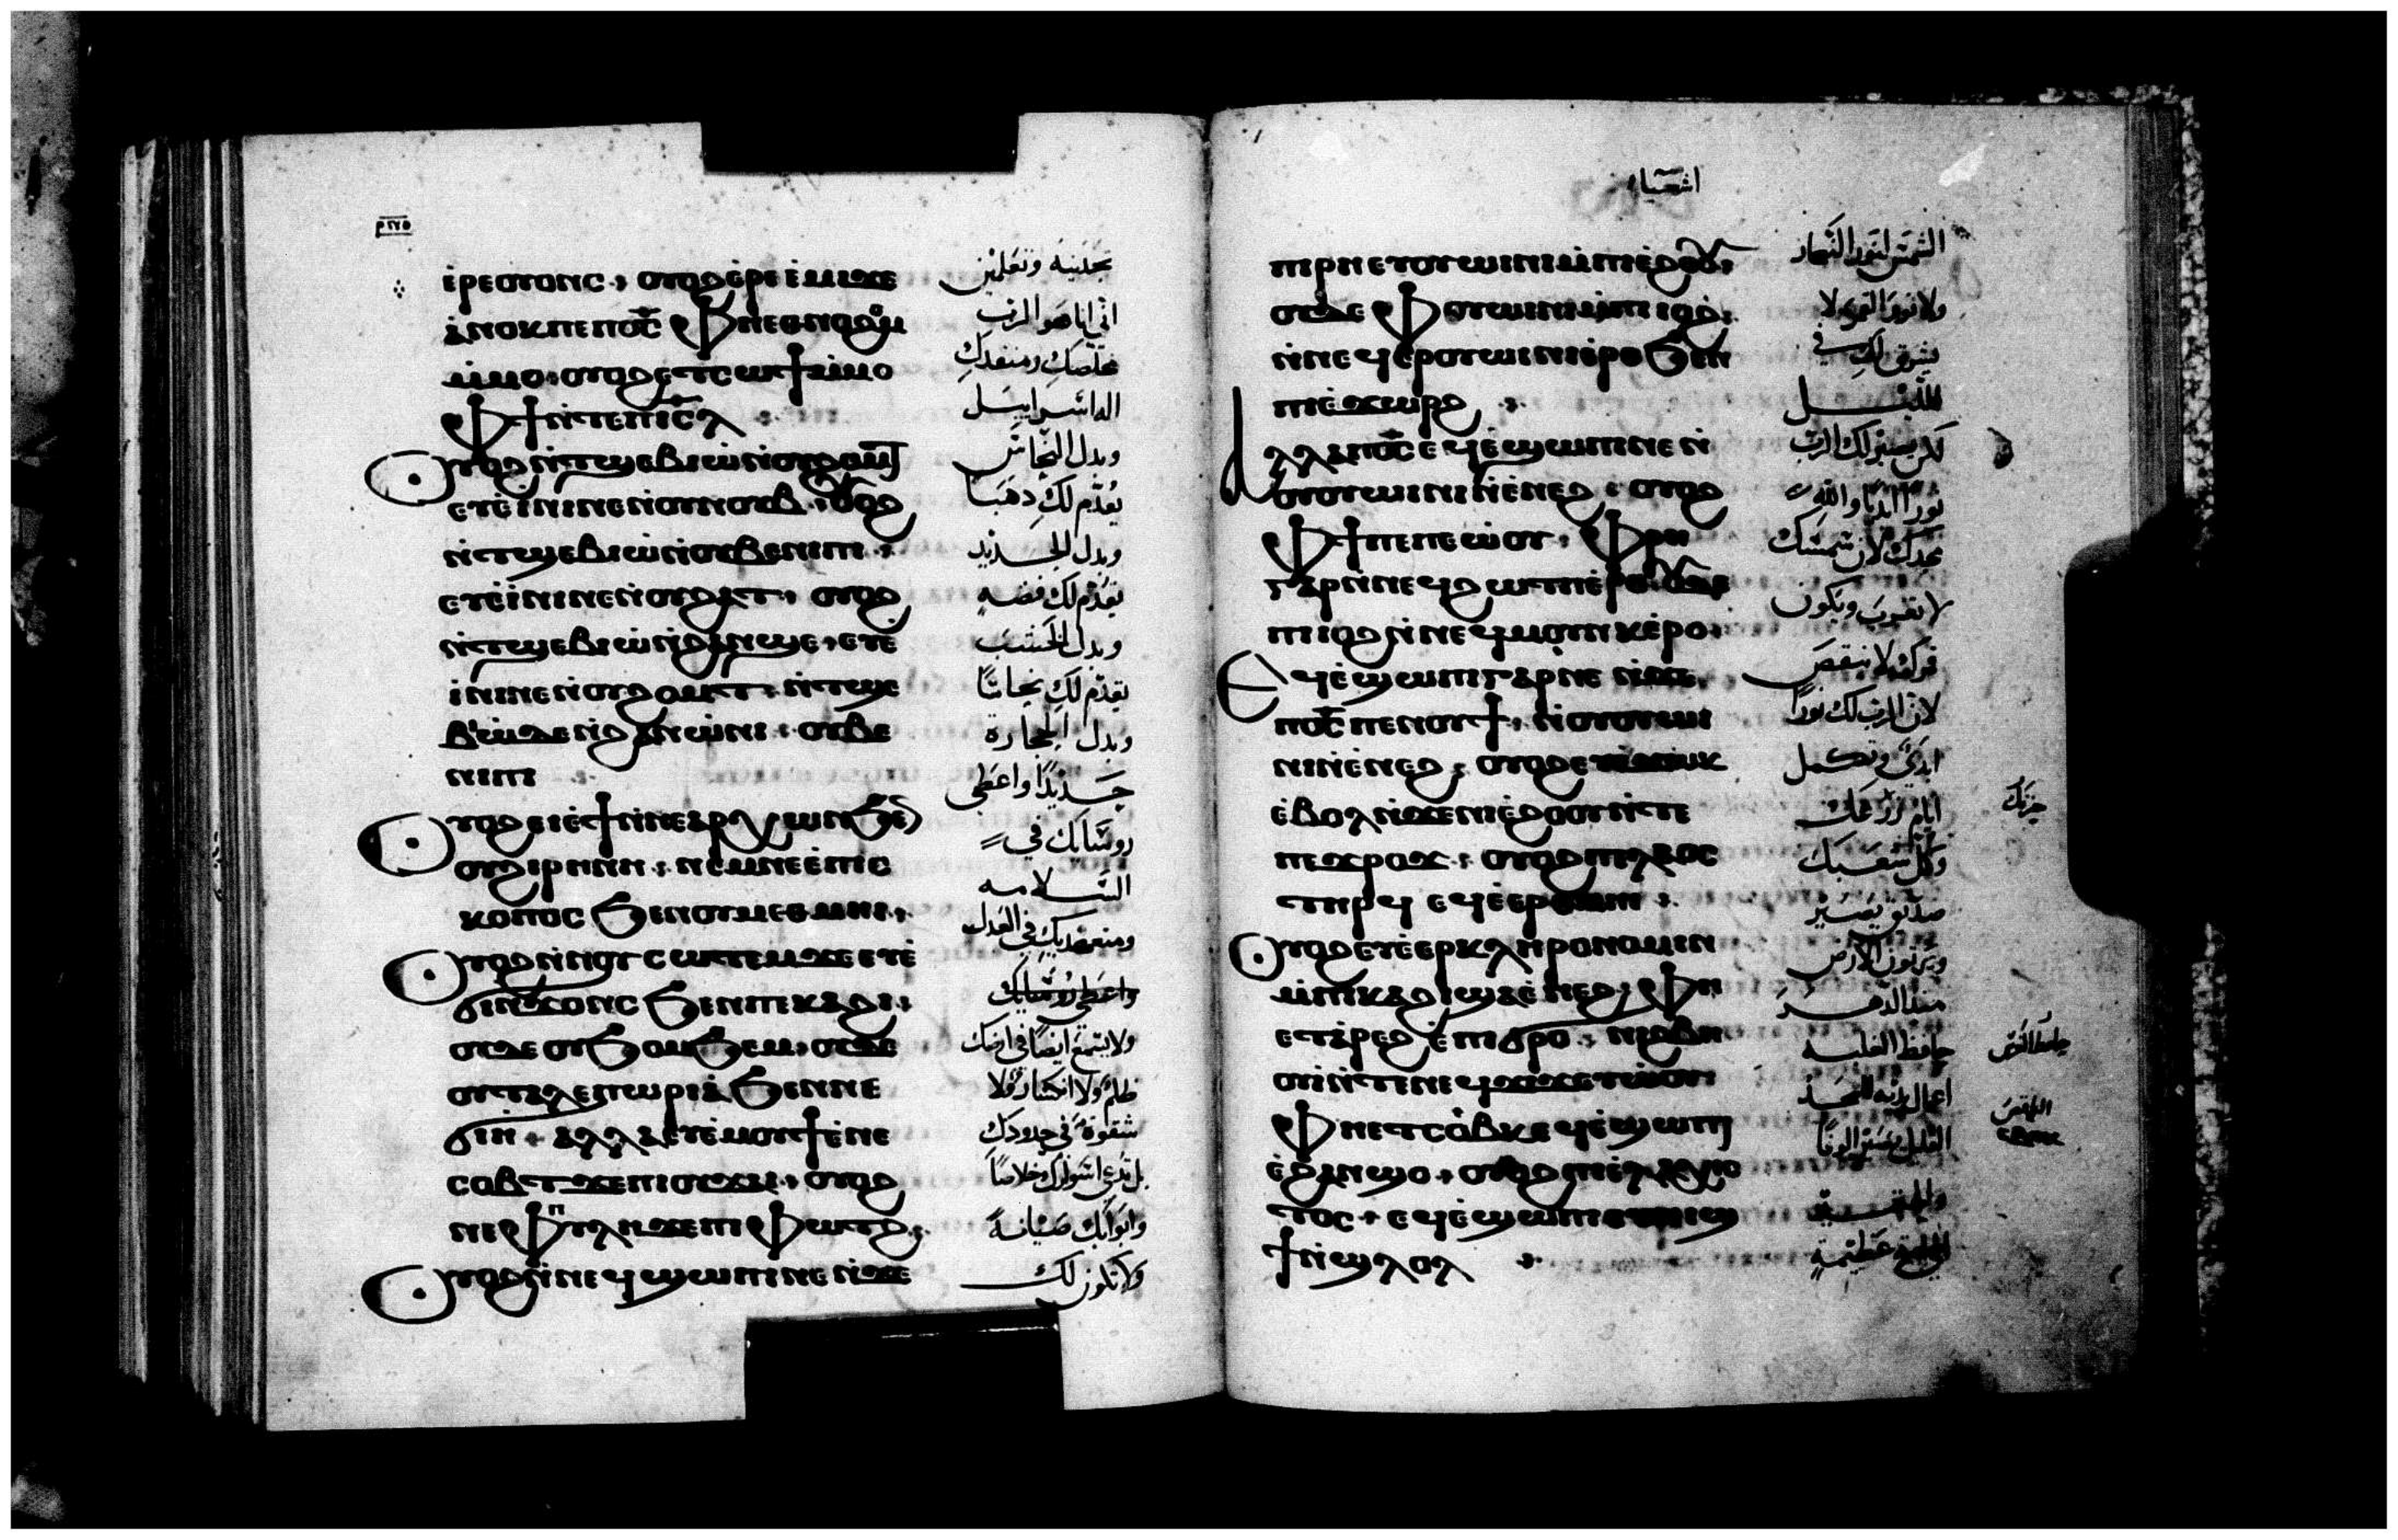 ⲉ̀ⲣⲉⲟⲩⲟⲛⲥ · ⲟⲩⲟϩ ⲉ̀ⲣⲉⲉ̀ⲙⲓϫⲉ
ⲁ̀ⲛⲟⲕ ⲡⲉ ⲡⲟ̅ⲥ̅ ⲫⲏⲉⲑⲛⲟϩⲉⲙ
ⲙ̀ⲙⲟ · ⲟⲩⲟϩ ⲉⲧⲥⲱϯ ⲙ̀ⲙⲟ
ⲫϯ ⲛ̀ⲧⲉ ⲡⲓⲥ̅ⲗ
ⲟⲩⲟϩ ⲛ̀ⲧϣⲉⲃⲓⲱ̀ ⲛ̀ⲟⲩϩⲟⲙⲧ
ⲉⲩⲉ̀ⲓⲛⲓ ⲛⲉ ⲛ̀ⲟⲩⲛⲟⲩⲃ · ⲟⲩⲟϩ
ⲛ̀ⲧϣⲉⲃⲓⲱ̀ ⲛ̀ⲟⲩⲃⲉⲛⲓⲡⲓ ·
ⲉⲩⲉ̀ⲓⲛⲓ ⲛⲉ ⲛ̀ⲟⲩϩⲁⲧ · ⲟⲩⲟϩ
ⲛ̀ⲧϣⲉⲃⲓⲱ̀ ⲛ̀ϩⲁⲛϣⲉ · ⲉⲩⲉ̀
ⲓⲛⲓ ⲛⲉ ⲛ̀ⲟⲩϩⲟⲙⲧ · ⲛ̀ⲧϣⲉ
ⲃⲓⲱ̀ ⲇⲉ ⲛ̀ϩⲁⲛⲱ̀ⲛⲓ · ⲟⲩⲃⲉ
ⲛⲓⲡⲓ
ⲟⲩⲟϩ ⲉⲓⲉ̀ϯ ⲛ̀ⲛⲉⲁⲣⲭⲱⲛ ϧⲉⲛ
ⲟⲩϩⲓⲣⲏⲛⲏ · ⲛⲉⲙ ⲛⲉⲉ̀ⲡⲓⲥ
ⲕⲟⲡⲟⲥ ϧⲉⲛ ⲟⲩⲙⲉⲑⲙⲏⲓ ·
ⲟⲩⲟϩ ⲛ̀ⲛⲟⲩⲥⲱⲧⲉⲙ ϫⲉ ⲉⲧⲉ̀
ϭⲓⲛϫⲟⲛⲥ ϧⲉⲛ ⲡⲓⲕⲁϩⲓ ·
ⲟⲩⲇⲉ ⲟⲩϧⲟⲙϧⲉⲙ · ⲟⲩⲇⲉ
ⲟⲩⲧⲁⲗⲉⲡⲱⲣⲓⲁ̀ ϧⲉⲛ ⲛⲉ
ϭⲓⲏ · ⲁⲗⲗⲁ ⲉⲩⲉ̀ⲙⲟⲩϯ ⲉ̀ⲛⲉ
ⲥⲟⲃⲧ ϫⲉ ⲡⲓⲟⲩϫⲁⲓ · ⲟⲩⲟϩ
ⲛⲓⲡⲩⲗⲏ ϫⲉ ⲡⲓⲫⲱⲧϩ ·
ⲟⲩⲟϩ ⲛ̀ⲛⲉϥϣⲱⲡⲓ ⲛⲉ ⲛ̀ϫⲉ
تجديه وتعلمين
اني انا هو الرب
مخلصك ومنقذك
اله اسراييل
وبدل النحاس
يقدّم لكِ ذهبا
وبدل الحديد
يقدّم لك فضه
وبدل الخشب
يقدّم لك نحاسًا
وبدل الحجارة
حديدًا واعطي
روساك في
السلامه
ومتعهديك في العدل
واعطي روساك
ولا يسمع ايضًا في ارضك
ظلم ولا انكسار ولا
شقوة في حدودك
بل تدعى اسوارك خلاصًا
وابوابك صيانة
ولا تكون لك
اشعيا
ⲡⲓⲣⲏ ⲉⲩⲟⲩⲱⲓⲛⲓ ⲙ̀ⲡⲓⲉ̀ϩⲟⲟⲩ ·
ⲟⲩⲇⲉ ⲫⲟⲩⲱⲓⲛⲓ ⲙ̀ⲡⲓⲓⲟϩ ·
ⲛ̀ⲛⲉϥⲉⲣⲟⲩⲱⲓⲛⲓ ⲉ̀ⲣⲟ ϧⲉⲛ
ⲡⲓⲉ̀ϫⲱⲣϩ
ⲁⲗⲗⲁ ⲡⲟ̅ⲥ̅ ⲉϥⲉ̀ϣⲱⲡⲓ ⲛⲉ ⲛ̀
ⲟⲩⲟⲩⲱⲓⲛⲓ ⲛ̀ⲉ̀ⲛⲉϩ · ⲟⲩⲟϩ
ⲫϯ ⲡⲉ ⲡⲉⲱ̀ⲟⲩ · ⲫⲣⲏ
ⲅⲁⲣ ⲛ̀ⲛⲉϥϩⲱⲧⲡ ⲉ̀ⲣⲟ · ⲟⲩⲟϩ
ⲡⲓⲓⲟϩ ⲛ̀ⲛⲉϥⲙⲟⲩⲛⲕ ⲉ̀ⲣⲟ ·
ⲉϥⲉ̀ϣⲱⲡⲓ ⲅⲁⲣ ⲛⲉ ⲛ̀ϫⲉ
ⲡⲟ̅ⲥ̅ ⲡⲉⲛⲟⲩϯ · ⲛ̀ⲟⲩⲟⲩⲱⲓ
ⲛⲓ ⲛ̀ⲉ̀ⲛⲉϩ · ⲟⲩⲟϩ
ⲉ̀ⲃⲟⲗ ⲛ̀ϫⲉ ⲛⲓⲉ̀ϩⲟⲟⲩ ⲛ̀ⲧⲉ
· ⲟⲩⲟϩ ⲡⲓⲗⲁⲟⲥ
ⲧⲏⲣϥ ⲉϥⲉ̀ⲉⲣⲑⲙⲏⲓ
ⲟⲩⲟϩ ⲉⲩⲉ̀ⲉⲣⲕⲗⲏⲣⲟⲛⲟⲙⲓⲛ
ⲙ̀ⲡⲓⲕⲁϩⲓ ϣⲁ ⲉ̀ⲛⲉϩ · ⲫⲏ
ⲉⲧⲁ̀ⲣⲉϩ ⲉ̀ⲡⲓϭⲣⲟ · ⲛⲓϩⲃⲏ
ⲟⲩⲓ̀ ⲛ̀ⲧⲉ ⲛⲉϥϫⲓϫ ⲉⲩⲱ̀ⲟⲩ
ⲫⲏ ⲉⲧⲥⲟⲃⲕ ⲉϥⲉ̀ϣⲱⲡⲓ
ⲉ̀ϩⲁⲛϣⲟ · ⲟⲩⲟϩ ⲡⲓⲉ̀ⲗⲁⲭⲓⲥ
ⲧⲟⲥ · ⲉϥⲉ̀ϣⲱⲡⲓ ⲉⲩⲛⲓϣ
ϯ ⲛ̀ϣⲗⲟⲗ
الشمس لنور النهار
ولا نور القمر لا
يشرق لك في
الليل
لكن يصير لك الرب
نورًا ابديًا والله
مجدك لان شمسك
لا تغرب ويكون
قمرك لا ينقص
لان الرب لك نورًا
ابدي وتكمل
ايام
وكل شعبك
صديق يصير
ويرثون الارض
منذ الدهر
حافظ الغلبه
اعمال يديه للمجد
القليل يصير الوفًا
والحقير
عظيمة
حزنك